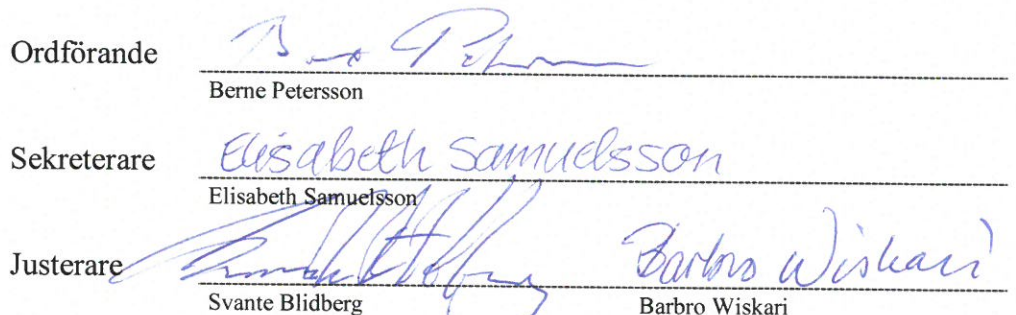 Ordförande Bert Petersson
Berne Petersson
Sekreterare Elisabeth Samuelsson
Elisabeth Samuelsson
Justerare Barbro Wiskari
Svante Blidberg Barbro Wiskari